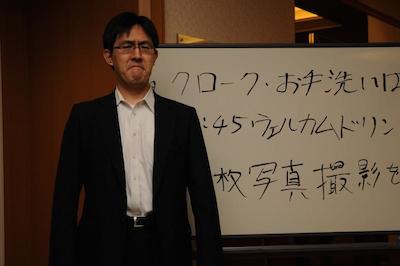 クローク・お手洗いは
:45 ウェルカムドリン
枚写真撮影を